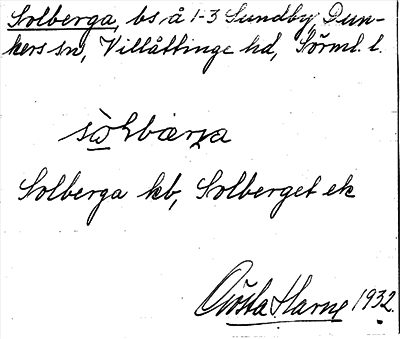 Solberga, bs å 1-3 Sundby, Dun-
kers sn, Villåttinge hd, Sörml. l.
Solberga kb, Solberget ek
Gösta Harne 1932.